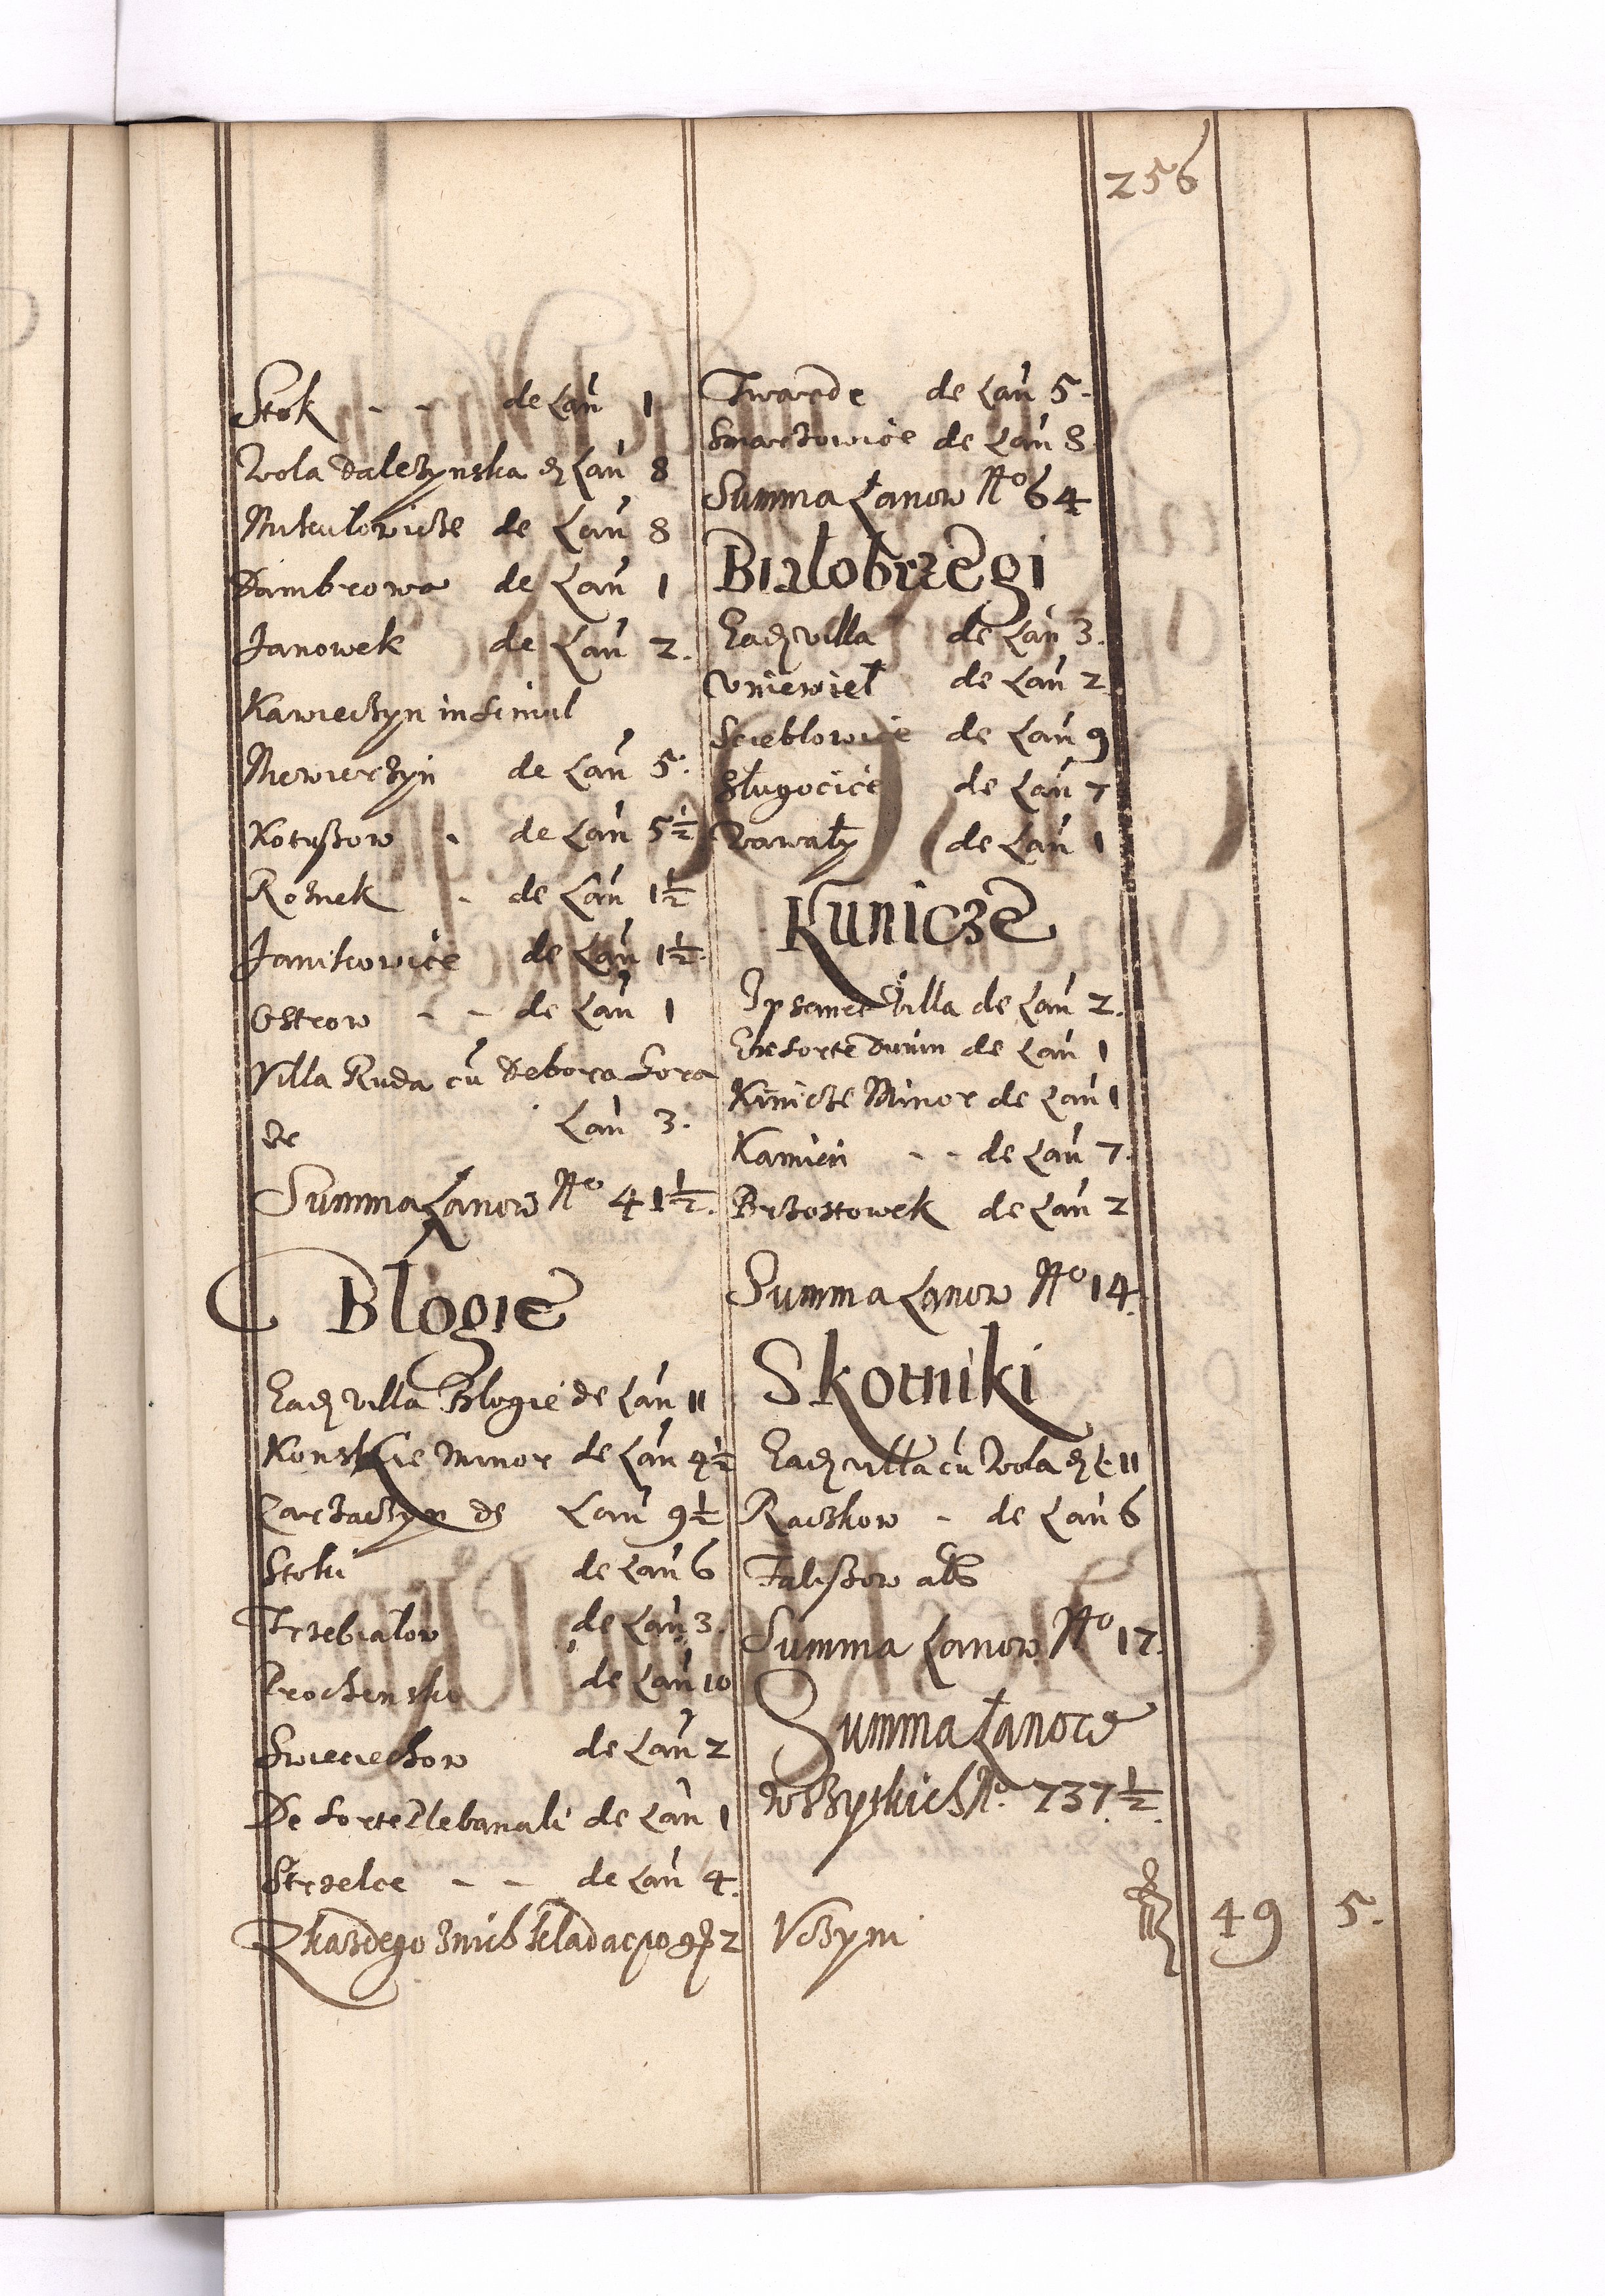 256
Stok - - de Łan 1
Wola Daleszynska de Łan 8
Mikulowicze de Łan 8
Dambrowa de Łan 1
Janowek de Łan 2.
Kawieczyn insimul
Mewierszyn de Łan 5.
Kotuszow - de Łan 5½
Rosnek - de Łan 1½
Janikowice de Łan 1½.
Ostrow - - de Łan 1
Villa Ruda cu Debora Sora
de Łan 3.
Summa Łanow No 41½.
Blogie
Eade villa Blogie de Łan 11
Konskie Minor de Łan 4½
de Łan 9½
Stoki de Łan 6
Trzebiatow de Łan 3.
Prochensko de Łan 10
Swieciechow de Łan 2
De Sorte Plebanali de Łan 1
Strzelce - - de Łan 4.
Z kazdego z nich kladac po gr 2
Twarde de Łan 5.
Smarzowice de Łan 8
Summa Łanow No 64
Bialobrzegi
Eade villa de Łan 3.
Uniewiel de Łan 2
Scieblowice de Łan 9
Slugocice de Łan 7
Zawały de Łan 1
Kunicze
Ipsamet Villa de Łan 2.
Ex sorte Dunin de Łan 1
Kinicze Minor de Łan 1
Kamien - - de Łan 7.
Brzostowek de Łan 2
Summa Łanow No 14.
Skotniki
Eade villa cu Wola de Ł 11
Raczkow - de Łan 6
Faliszow abs
Summa Łanow No 17.
Summa Łanow
wszytkich No. 737½.
Uczyni fl 49 5.